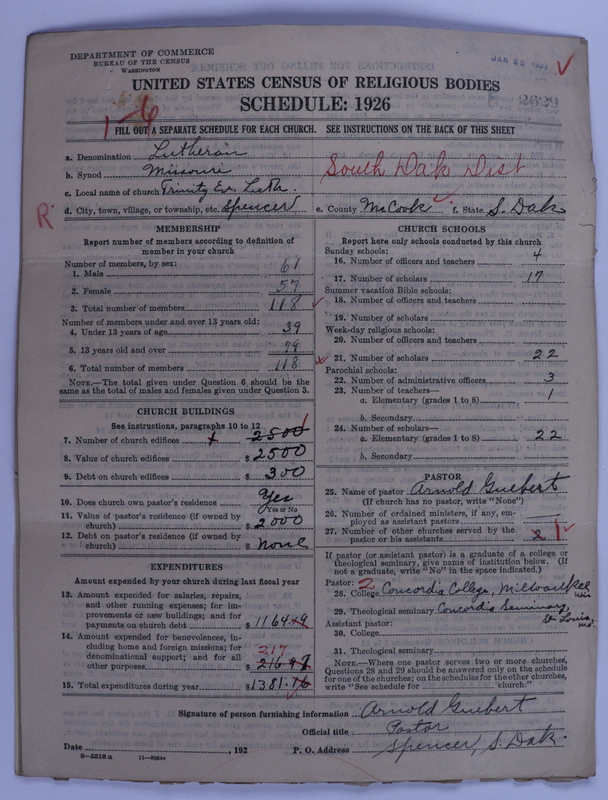 DEPARTMENT OF COMMERCE
BUREAU OF THE CENSUS
WASHINGTON
JAN 25
UNITED STATES CENSUS OF RELIGIOUS BODIES
SCHEDULE: 1926
2629
1-6
FILL OUT A SEPARATE SCHEDULE FOR EACH CHURCH. SEE INSTRUCTIONS ON THE BACK OF THIS SHEET
a. Denomination Lutheran
b. Synod Missouri
South Dak Dist
c. Local name of church Trinity Ev. Luth.
R.
d. City, town, village, or township, etc. Spencer e. County McCook f. State S. Dak
MEMBERSHIP
Report number of members according to definition of
member in your church
Number of members, by sex:
1. Male 61
2. Female 57
3. Total number of members 118
Number of members under and over 13 years old:
4. Under 13 years of age 39
5. 13 years old and over 79
6. Total number of members 118
NOTE.—The total given under Question 6 should be the
same as the total of males and females given under Question 3.
CHURCH BUILDINGS
See instructions, paragraphs 10 to 12
7. Number of church edifices 2500 1
8. Value of church edifices $ 2500
9. Debt on church edifices $ 300
10. Does church own pastor's residence Yes
Yes or No
11. Value of pastor's residence (if owned by
church) $ 2000
12. Debt on pastor's residence (if owned by
church) $ None
EXPENDITURES
Amount expended by your church during last fiscal year
13. Amount expended for salaries, repairs,
and other running expenses; for im-
provements or new buildings; and for
payments on church debt $ 1164
14. Amount expended for benevolences, in-
cluding home and foreign missions; for
denominational support; and for all
other purposes 217 $ 216
15. Total expenditures during year $ 1381.
CHURCH SCHOOLS
Report here only schools conducted by this church
Sunday schools:
16. Number of officers and teachers 4
17. Number of scholars 17
Summer vacation Bible schools:
18. Number of officers and teachers
19. Number of scholars
Week-day religious schools:
20. Number of officers and teachers
21. Number of scholars 22
Parochial schools:
22. Number of administrative officers 3
23. Number of teachers—
a. Elementary (grades 1 to 8) 1
b. Secondary
24. Number of scholars—
a. Elementary (grades 1 to 8) 22
b. Secondary
PASTOR
25. Name of pastor Arnold Guebert
(If church has no pastor, write "None")
26. Number of ordained ministers, if any, em-
ployed as assistant pastors
27. Number of other churches served by the
pastor or his assistants 2 1
If pastor (or assistant pastor) is a graduate of a college or
theological seminary, give name of institution below. (If
not a graduate, write "No" in the space indicated.)
Pastor: 2
28. College Concordia College, Milwaukee Wis
29. Theological seminary Concordia Seminary, St. Louis, Mo.
Assistant pastor:
30. College
31. Theological seminary
NOTE.—Where one pastor serves two or more churches,
Questions 28 and 29 should be answered only on the schedule
for one of the churches; on the schedules for the other churches,
write "See schedule for church."
Signature of person furnishing information Arnold Guebert
Official title Pastor
Date , 192 P. O. Address Spencer, S. Dak.
6-5518a 11-9054